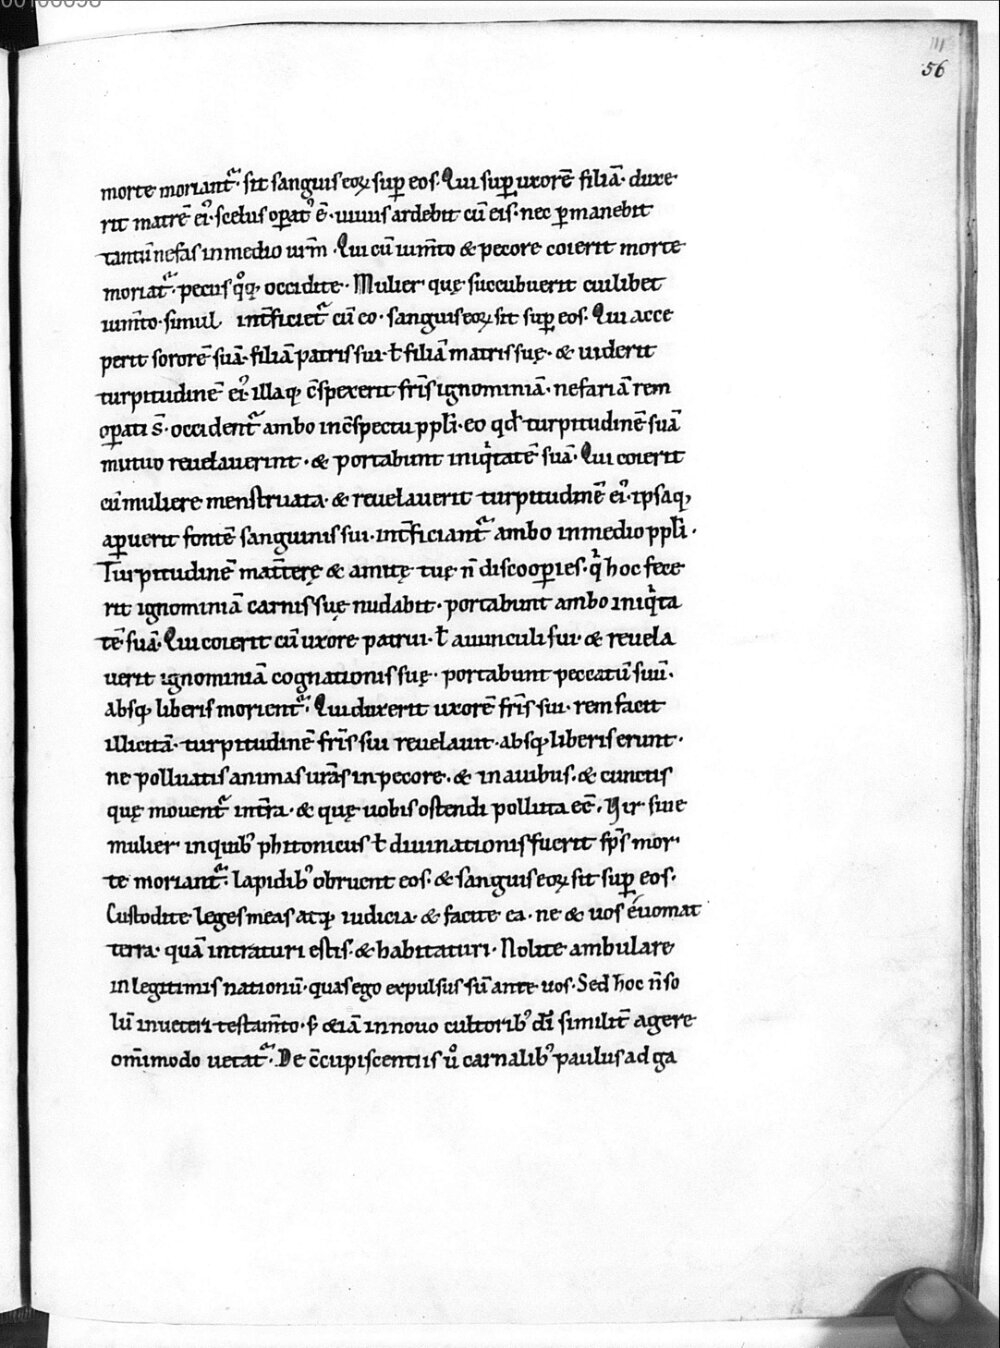 00106098
111
56
morte moriant᷑· sit sanguis eoꝝ suꝑ eos. Qui suꝑ uxorē filiā· duxe
rit matrē ei᾿· scelus oꝑat᾿ ē· uiuus ardebit cū eis· nec ꝑmanebit
tantū nefas in medio ur̄m. Qui cū ium̄to & pecore coierit morte
moriat᷑· pecus qͦꝙ occidite· Mulier quę succubuerit cuilibet
ium̄to· simul int̄ficiet᷑ cū eo· sanguis eoꝝ sit suꝑ eos. Qui acce
perit sororē suā· filiā patris sui· ł filiā matris suę· & uiderit
turpitudinē ei᾿· illaꝙ c̄spexerit fr̄is ignominiā· nefariā rem
oꝑati s̄· occident᷑ ambo in c̄spectu ppłi· eo qd̄ turpitudinē suā
mutuo reuelauerint· & portabunt iniqͥtatē suā. Qui coierit
cū muliere menstruata· & reuelauerit turpitudinē ei᾿· ipsaq,
aꝑuerit fontē sanguinis sui· int̄ficiant᷑ ambo in medio ppłi·
Turpitudinē mat̄terę & amitę tuę n̄ discooꝑies· qͥ hoc fece
rit ignominiā carnis suę nudabit· portabunt ambo iniqͥta
tē suā. Qui coierit cū uxore patrui· ł auunculi sui & reuela
uerit ignominiā cognationis suę· portabunt peccatū suū·
absꝙ liberis morient᷑. Qui duxerit uxorē fr̄is sui· rem facit
illicitā· turpitudinē fr̄is sui reuelauit· absꝙ liberis erunt·
ne polluatis animas ur̄as in pecore· & in auibus· & cunctis
quę mouent᷑ int̄ra· & quę uobis ostendi polluta eē. Vir siue
mulier in quib᾿ phitonicus ł diuinationis fuerit sp̄s mor
te moriant᷑· lapidib᾿ obruent eos· & sanguis eoꝝ sit suꝑ eos.
Custodite leges meas atꝙ iudicia· & facite ea· ne & uos éuomat
terra· quā intraturi estis· & habitaturi· Nolite ambulare
in legitimis nationū· quas ego expulsus sū ante uos· Sed hoc n̄ so
lū in ueteri testam̄to· s; &iā in nouo cultorib᾿ dī similit̄ agere
om̄imodo uetat᷑. De c̄cupiscentiis uͦ carnalib᾿ paulus ad ga